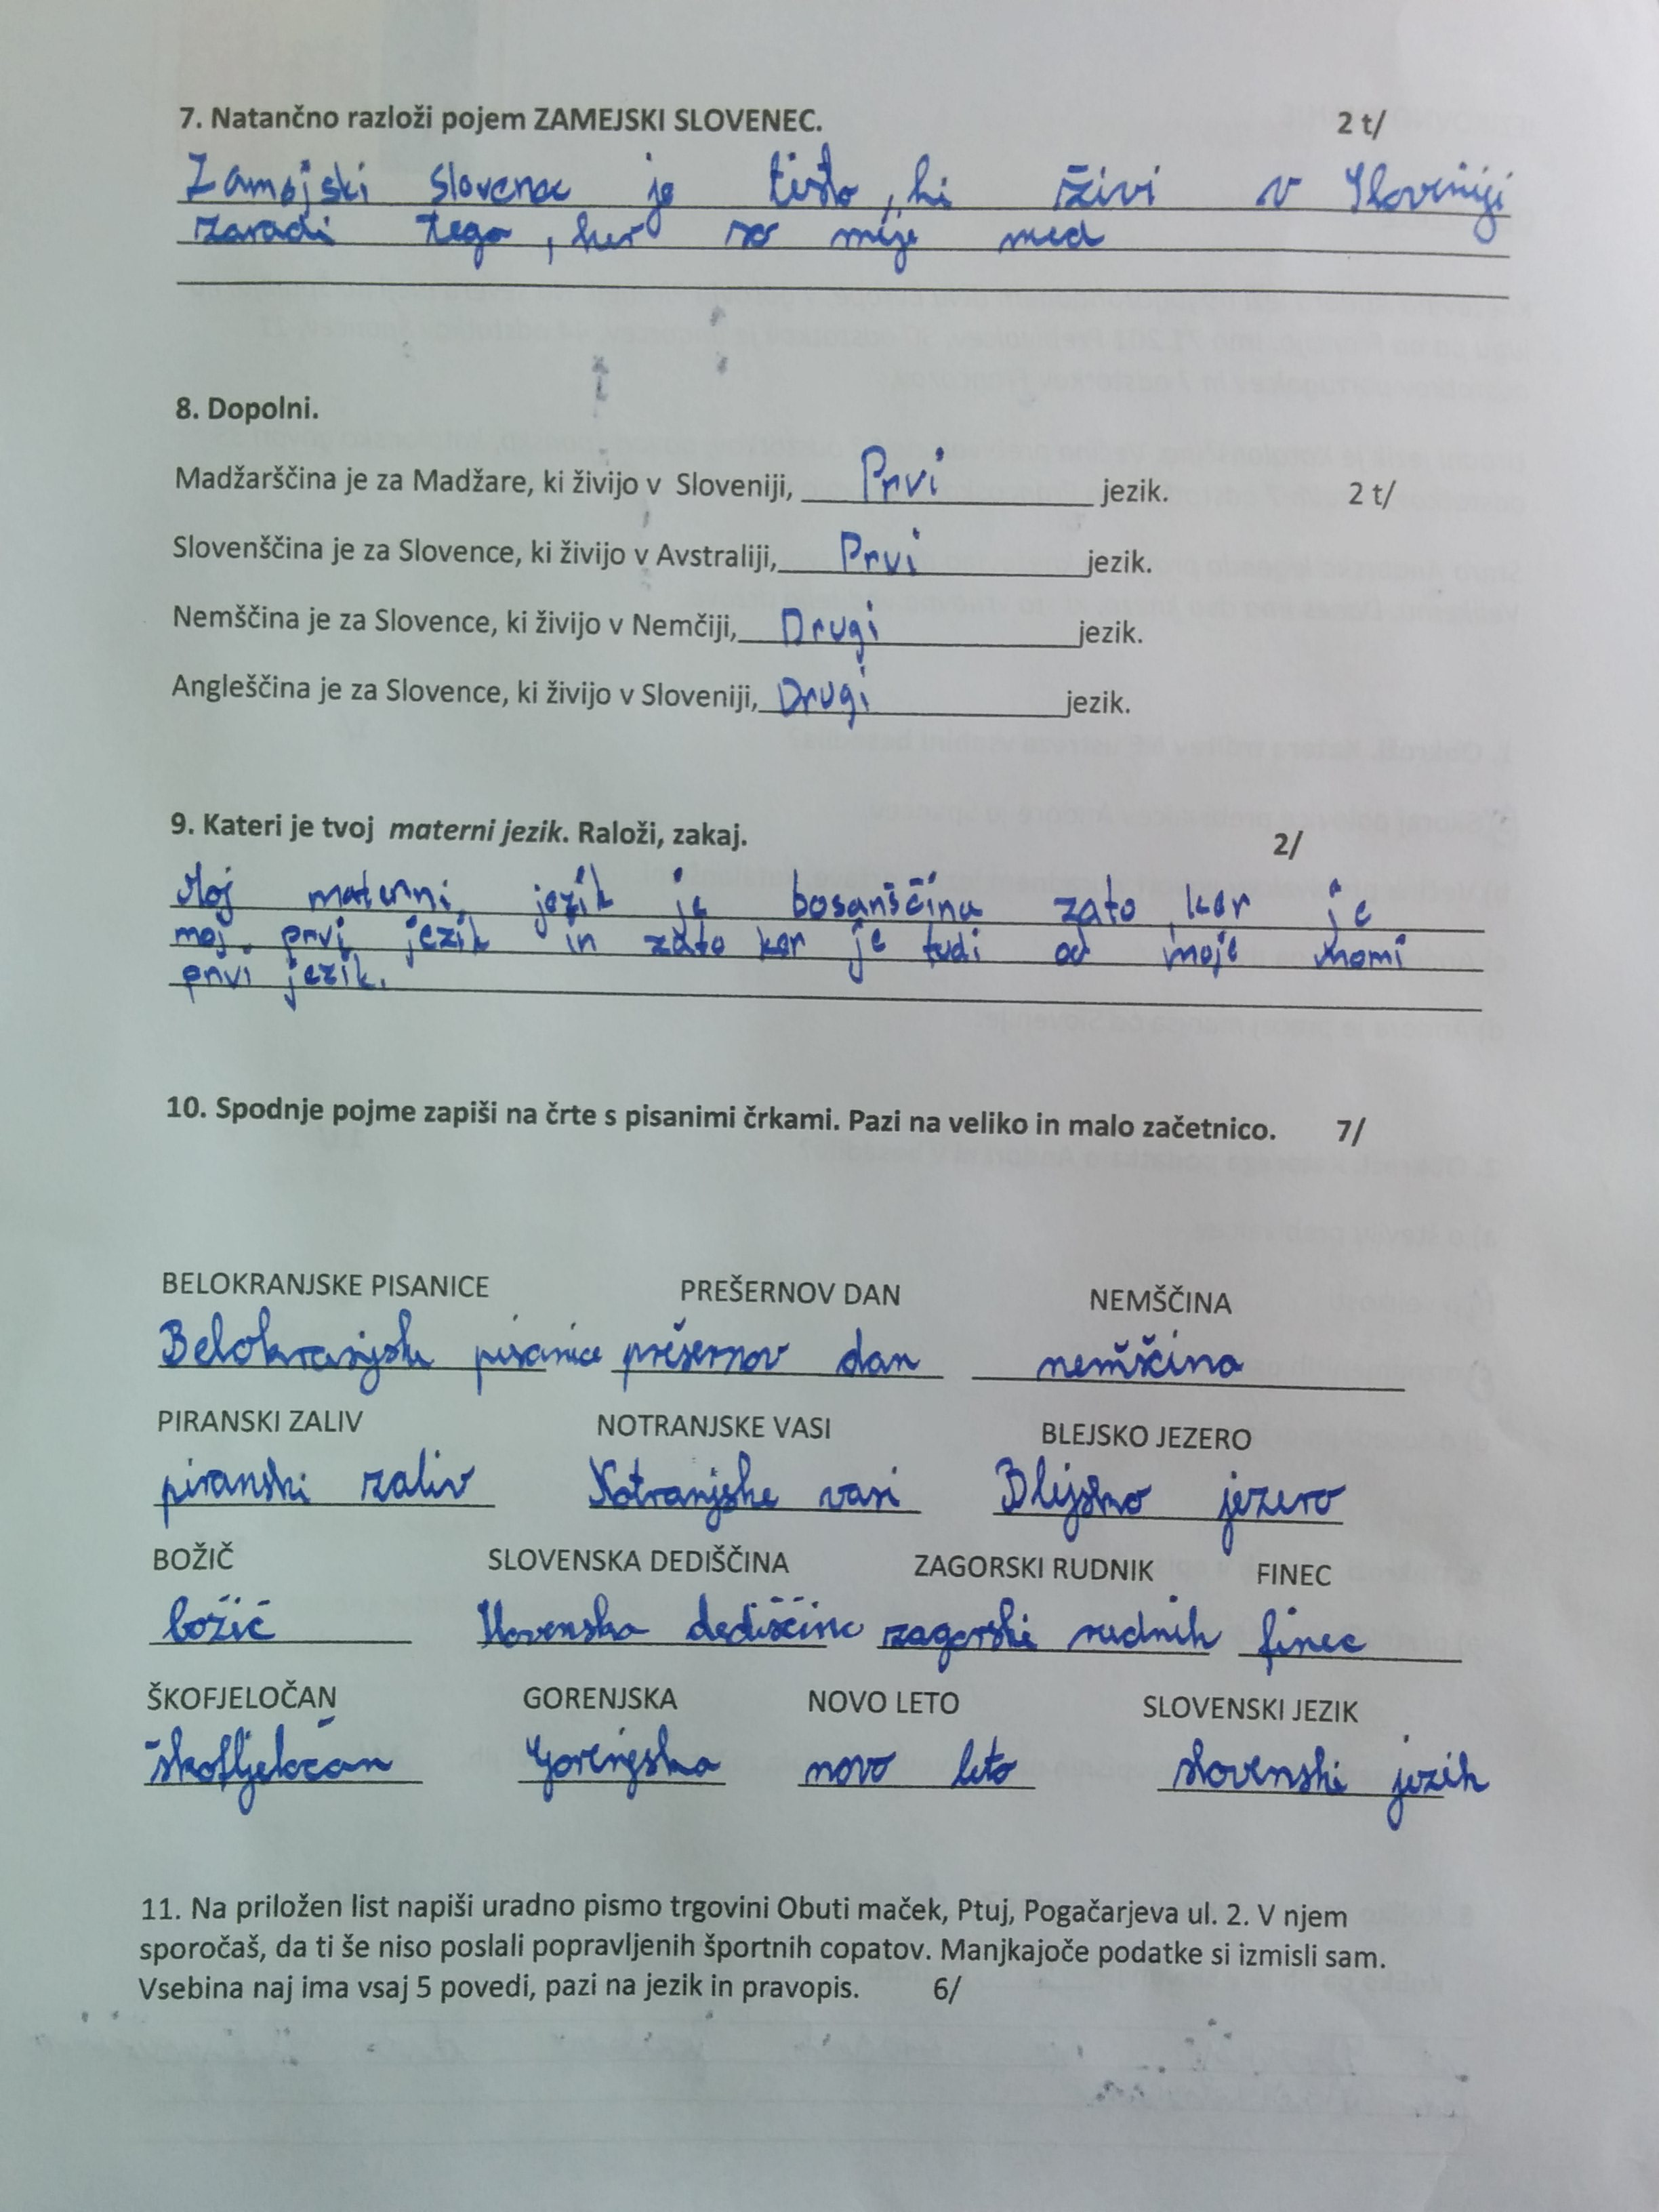 7. Natančno razloži pojem ZAMEJSKI SLOVENEC. 2 t/
Zamejski Slovenec je tisto, ki živi v Sloveniji
zaradi tega, ker so meje med
8. Dopolni.
Madžarščina je za Madžare, ki živijo v Sloveniji, Prvi jezik. 2 t/
Slovenščina je za Slovence, ki živijo v Avstraliji, Prvi jezik.
Nemščina je za Slovence, ki živijo v Nemčiji, Drugi jezik.
Angleščina je za Slovence, ki živijo v Sloveniji, Drugi jezik.
9. Kateri je tvoj materni jezik. Raloži, zakaj. 2/
Moj materni jezik je bosanščina zato ker je
moj prvi jezik in zato ker je tudi od moje mami
prvi jezik.
10. Spodnje pojme zapiši na črte s pisanimi črkami. Pazi na veliko in malo začetnico. 7/
BELOKRANJSKE PISANICE PREŠERNOV DAN NEMŠČINA
Belokranjske pisanice prešernov dan nemščina
PIRANSKI ZALIV NOTRANJSKE VASI BLEJSKO JEZERO
piranski zaliv Notranjske vasi Blejsko jezero
BOŽIČ SLOVENSKA DEDIŠČINA ZAGORSKI RUDNIK FINEC
božič Slovenska dediščina zagorski rudnik finec
ŠKOFJELOČAN GORENJSKA NOVO LETO SLOVENSKI JEZIK
škofjeločan Gorenjska novo leto slovenski jezik
11. Na priložen list napiši uradno pismo trgovini Obuti maček, Ptuj, Pogačarjeva ul. 2. V njem
sporočaš, da ti še niso poslali popravljenih športnih copatov. Manjkajoče podatke si izmisli sam.
Vsebina naj ima vsaj 5 povedi, pazi na jezik in pravopis. 6/